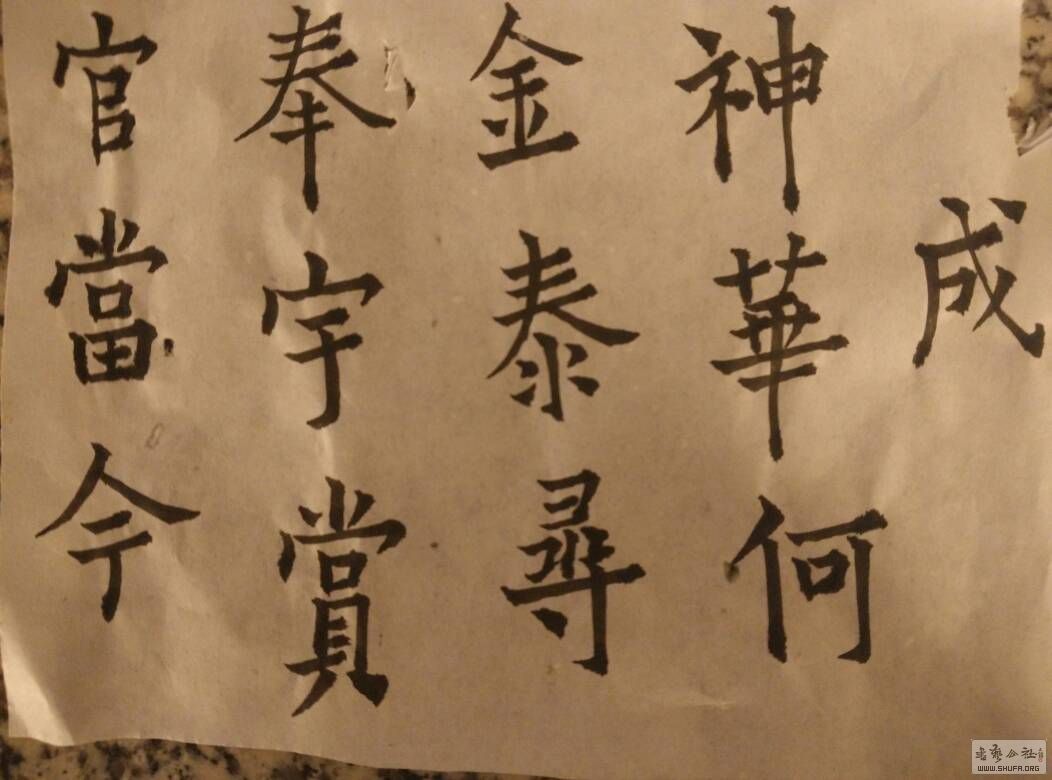 成
神華何
金泰尋
奉宇賞
官當今
书艺公社
WWW.SHUFA.ORG